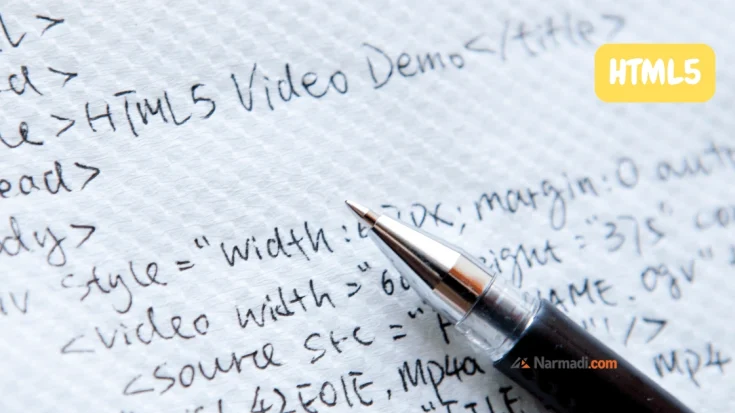 l>
ad>
le>HTML5 Video Demo</title>
HTML5
ead>
ody>
iv style="width: 670x; margin:0 auto
<video width="60 eight="375" co
<source src="F NAME.ogv"
"/>
42E01E, mp4a mp4
"FILE
Narmadi.com